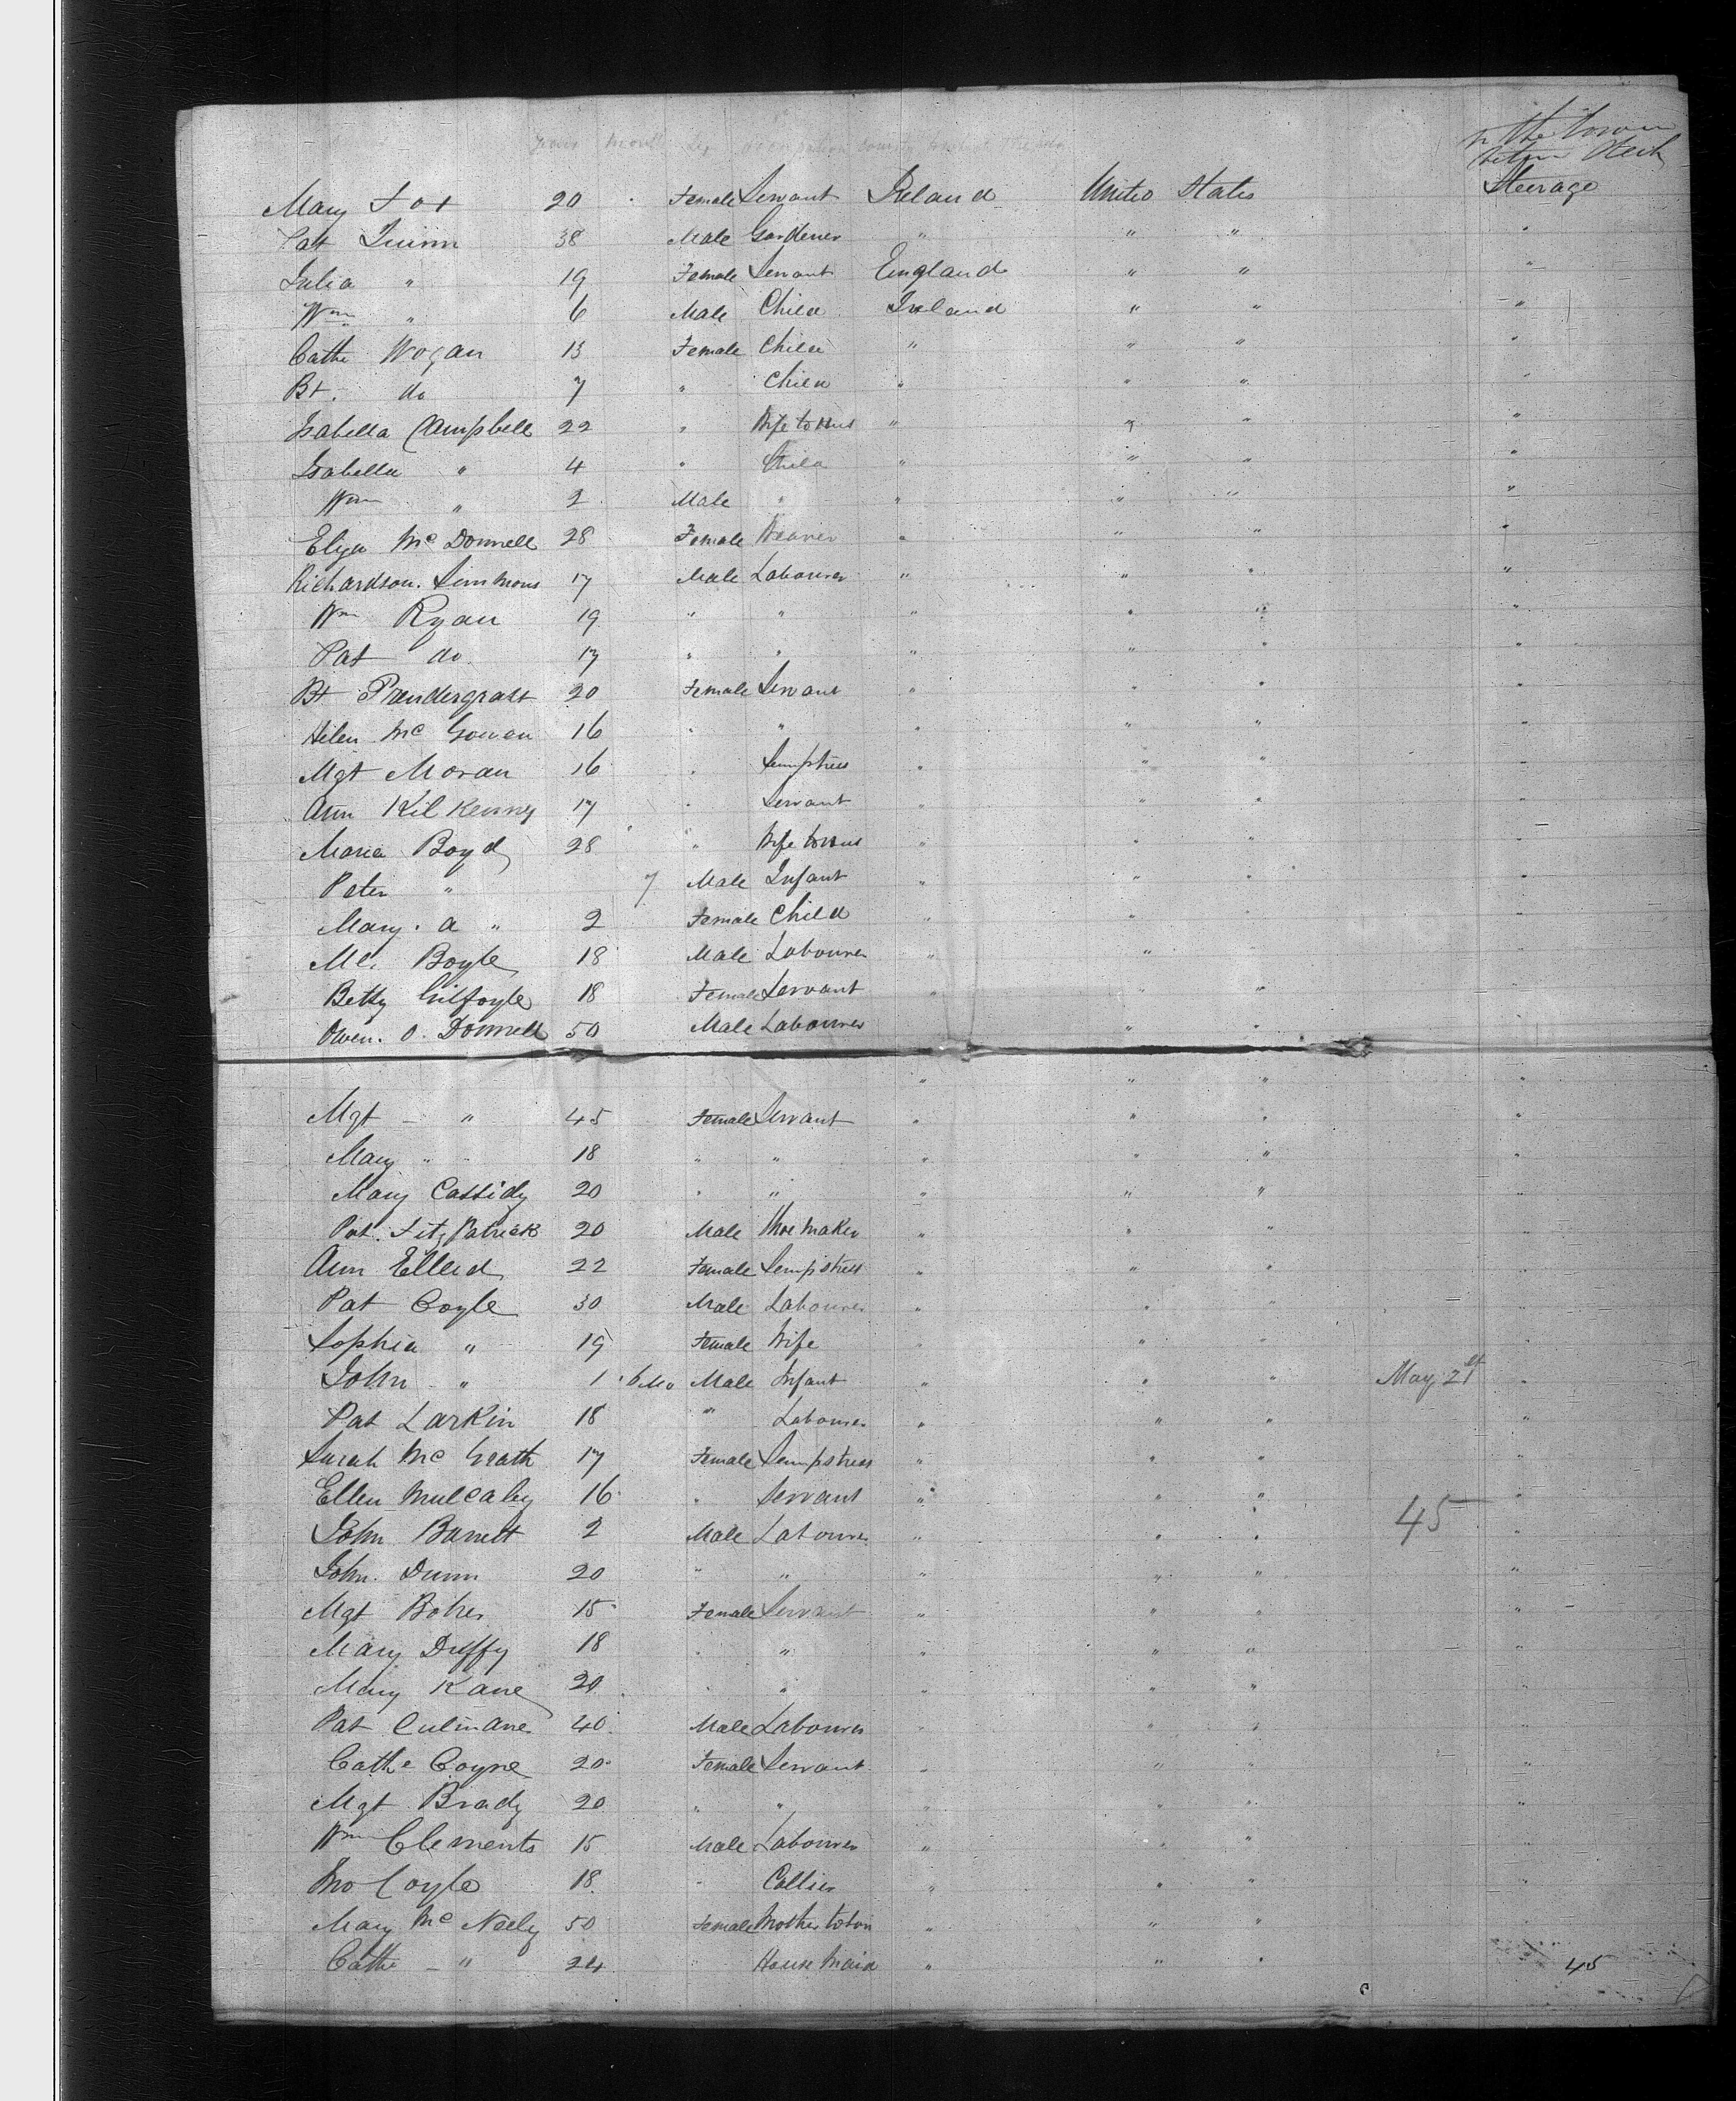 years months Sex occupation country
In the lower
between Deck
Mary Fox 20 Female Servant Ireland United States Steerage
Pat Quinn 38 Male Gardener " " " "
Julia " 19 Female Servant England " " "
Wm " 6 Male Child Ireland " " "
Cathe Wogan 13 Female Child " " " "
Bt. do 7 " Child " " " "
Isabella Campbell 22 " Wife to Hus " " " "
Isabella " 4 " Child " " " "
Wm " 2 Male " " " " "
Eliza McDonnell 28 Female Weaver " " " "
Richardson. Simmons 17 Male Labourer " " " "
Wm Ryan 19 " " " " " "
Pat do. 17 " " " " " "
Bt Prendergrast 20 Female Servant " " " "
Helen McGowen 16 " " " " " "
Mgt Moran 16 " Sempstress " " " "
Ann Kilkenny 17 " Servant " " " "
Maria Boyd 28 " Wife to Hus " " " "
Peter " 7 Male Infant " " " "
Mary. A " 2 Female Child " " " "
Ml. Boyle 18 Male Labourer " " "
Betty Gilfoyle 18 Female Servant " " " "
Owen. O. Donnell 50 Male Labourer " "
" " " "
Mgt - " 45 Female Servant " " " "
Mary " 18 " " " " " "
Mary Cassidy 20 " " " " " "
Pat. Fitz Patrick 20 Male Shoemaker " " " "
Ann Elleed 22 Female Sempstress " " " "
Pat Coyle 30 Male Labourer " " " "
Sophia " 19 Female Wife " " " "
John " 1 6 Mo Male Infant " " " May 21st "
Pat Larkin 18 " Labourer " " " "
Sarah McGrath 17 Female Sempstress " " " "
Ellen Mulcahy 16 " Servant " " " "
John Barrett 2 Male Labourer " " " 45 "
John. Dunn 20 " " " " " "
Mgt Boher 15 Female Servant " " " "
Mary Duffy 18 " " " " " "
Mary Kane 20 " " " " " "
Pat Culinane 40 Male Labourer " " " "
Cathe Coyne 20 Female Servant " " " "
Mgt Brady 20 " " " " " "
Wm Clements 15 Male Labourer " " " "
Jno Coyle 18 " Collier " " " "
Mary McNeely 50 Female Mother to son " " "
Cathe - " 24 " House Maid " " " 45